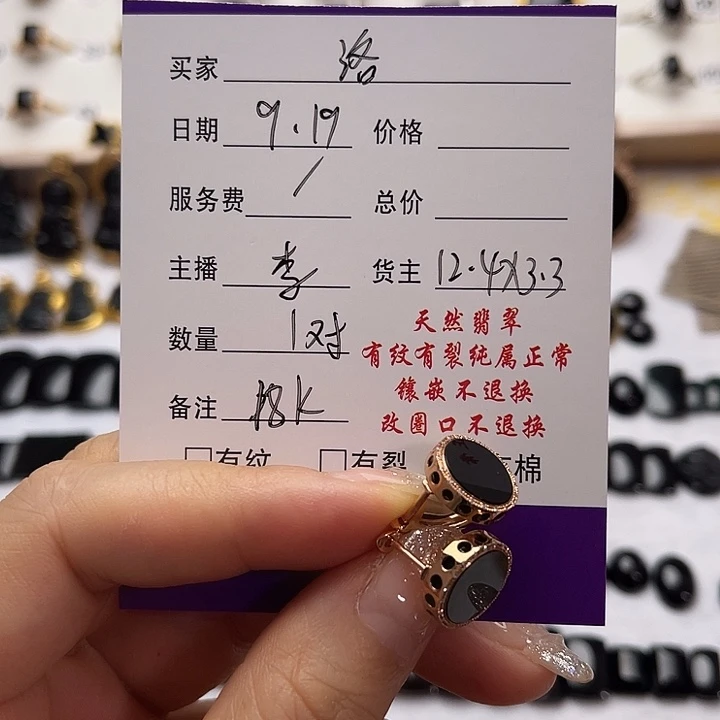 买家 洛
日期 9.19 价格
服务费 / 总价
主播 李 货主 12.4X3.3
数量 1对
天然翡翠
有纹有裂纯属正常
备注 18K
镶嵌不退换
改圈口不退换
□有纹 □有裂 棉